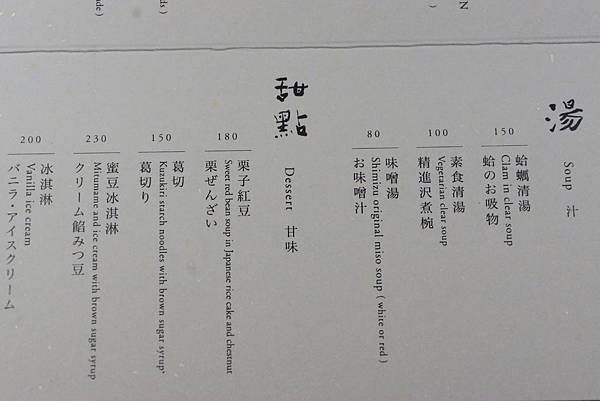 湯
Soup 汁
150
蛤蠣清湯
Clam in clear soup
蛤のお吸物
100
素食清湯
Vegetarian clear soup
精進沢煮椀
80
味噌湯
Shimizu original miso soup ( white or red )
お味噌汁
甜點
Dessert 甘味
180
栗子紅豆
Sweet red bean soup in Japanese rice cake and chestnut
栗ぜんざい
150
葛切
Kuzukiri starch noodles with brown sugar syrup.
葛切り
230
蜜豆冰淇淋
Mitumame and ice cream with brown sugar syrup
クリーム餡みつ豆
200
冰淇淋
Vanilla ice cream
バニラ・アイスクリーム